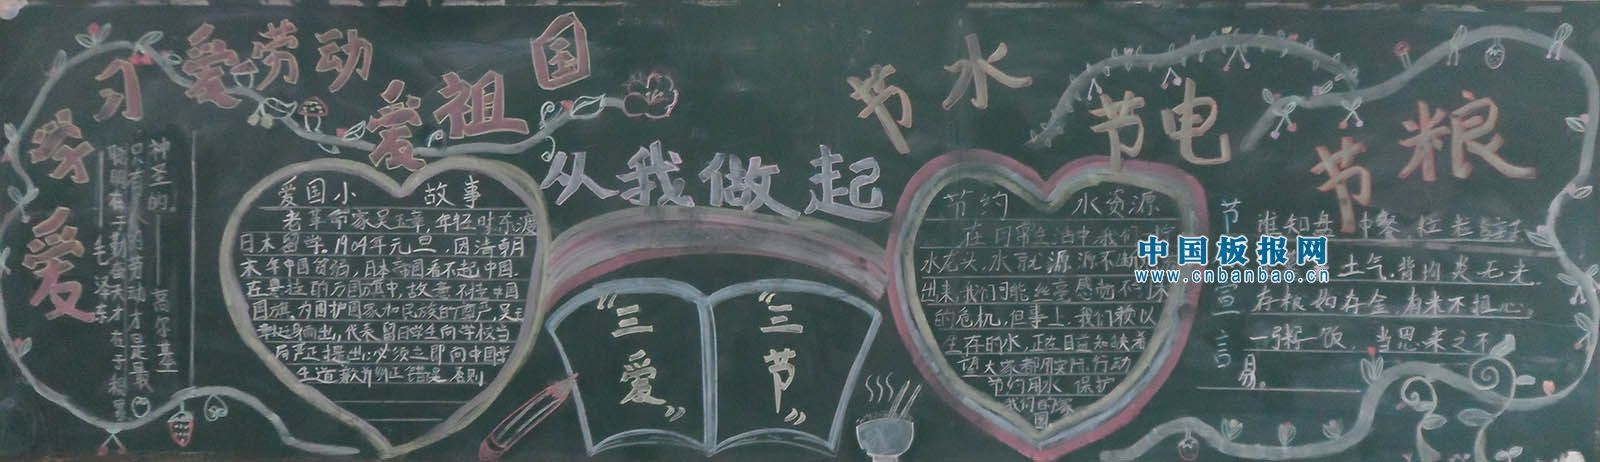 爱学习
爱劳动
爱祖国
节水
节电
节粮
从我做起
神圣的——高尔基
只有人的劳动才是最
聪明在于勤奋天才在于积累
——毛泽东
爱国小 故事
老革命家吴玉章,年轻时东渡
日本留学。1904年元旦,因清朝
末年中国贫弱,日本帝国看不起中国.
在悬挂的万国旗中,故意不挂中国
国旗,为国护国家和民族的尊严,吴玉
章挺身而出,代表留日学生向学校当
局严正提出:必须立即向中国学
生道歉并纠正错误 否则
“三爱”
“三节”
节约 水资源
在日常生活中,我们
水龙头,水就源源不断
出来,我们可能丝毫感觉不
的危机,但事上,我们赖以
生存的水,正在日益短缺着
大家都用实际行动
节约用水 保护
我们的家
园
节宣言
谁知盘中餐,粒粒
土气,背灼炎天光
存粮如存金,有米不担心,
一粥一饭,当思来之不
易。
中国板报网
www.cnbanbao.cn